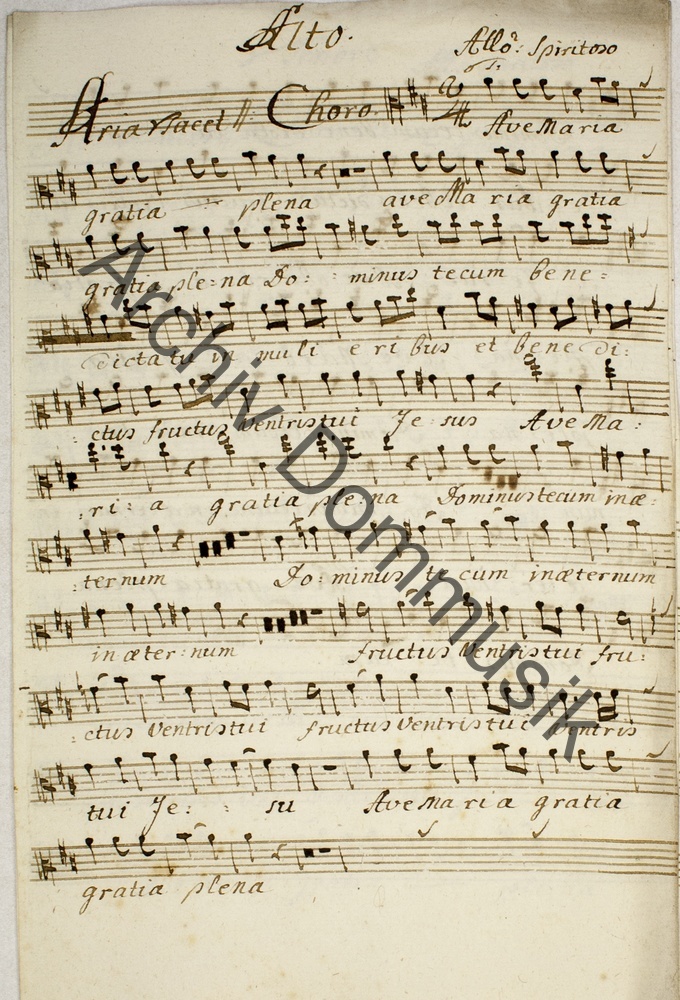 Alto.
Allo: Spiritoso
Aria tacet || Choro.
Ave Maria
gratia plena ave Ma ria gratia
gratia ple:na Do: : minus tecum bene:
dicta tu in muli eri bus et bene di:
:ctus fructus Ventris tui Je:sus Ave Ma:
:ri:a gratia ple:na Dominus tecum in æ:
:ternum Do:minus te cum in æternum
in æter:num fructus Ventris tui fru:
:ctus Ventris tui fructus Ventris tui Ventris
tui Je: : su Ave Ma ria gratia
gratia plena
Archiv Dommusik